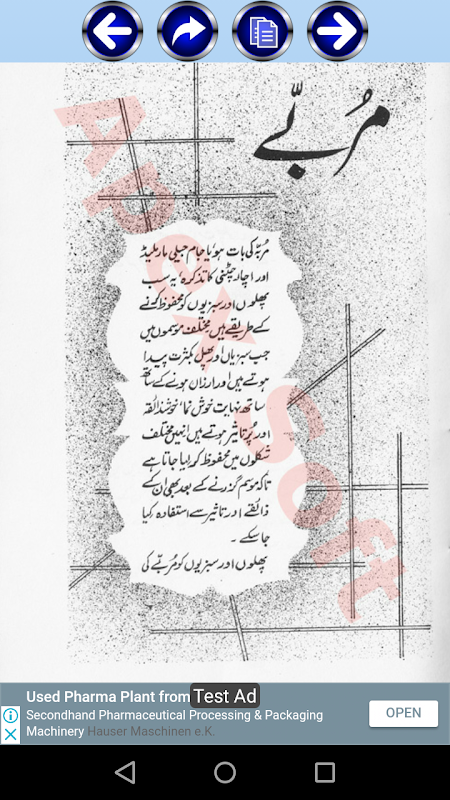 مُربّے
مُربّہ کی بات ہو، یا جام جیلی مارملیڈ
اور اچار چٹنی کا تذکرہ، یہ سب
پھلوں اور سبزیوں کو محفوظ کرنے
کے طریقے ہیں مختلف موسموں میں
جب سبزیاں اور پھل بکثرت پیدا
ہوتے ہیں اور ارزاں ہونے کے ساتھ
ساتھ نہایت خوش نما، خوش ذائقہ
اور پُر تاثیر ہوتے ہیں انہیں مختلف
شکلوں میں محفوظ کر لیا جاتا ہے
تاکہ موسم گزرنے کے بعد بھی ان کے
ذائقے اور تاثیر سے استفادہ کیا
جا سکے ۔
پھلوں اور سبزیوں کو مُربّے کی
Apex Soft
Used Pharma Plant from
Test Ad
Secondhand Pharmaceutical Processing & Packaging
Machinery Hauser Maschinen e.K.
OPEN